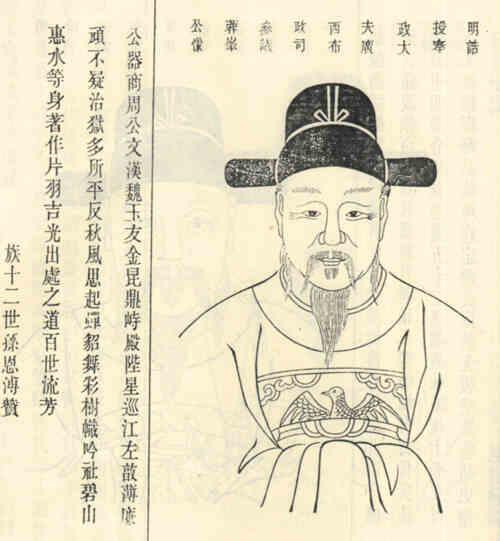 明誥
授奉
政大
夫廣
西布
政司
參議
峯
公像
公器商周公文漢魏玉友金昆鼎峙殿陛星巡江左薄
頭不疑治獄多所平反秋風思起蟬貂舞彩樹幟吟社碧山
惠水等身著作片羽吉光出處之道百世流芳
族十二世孫恩溥贊